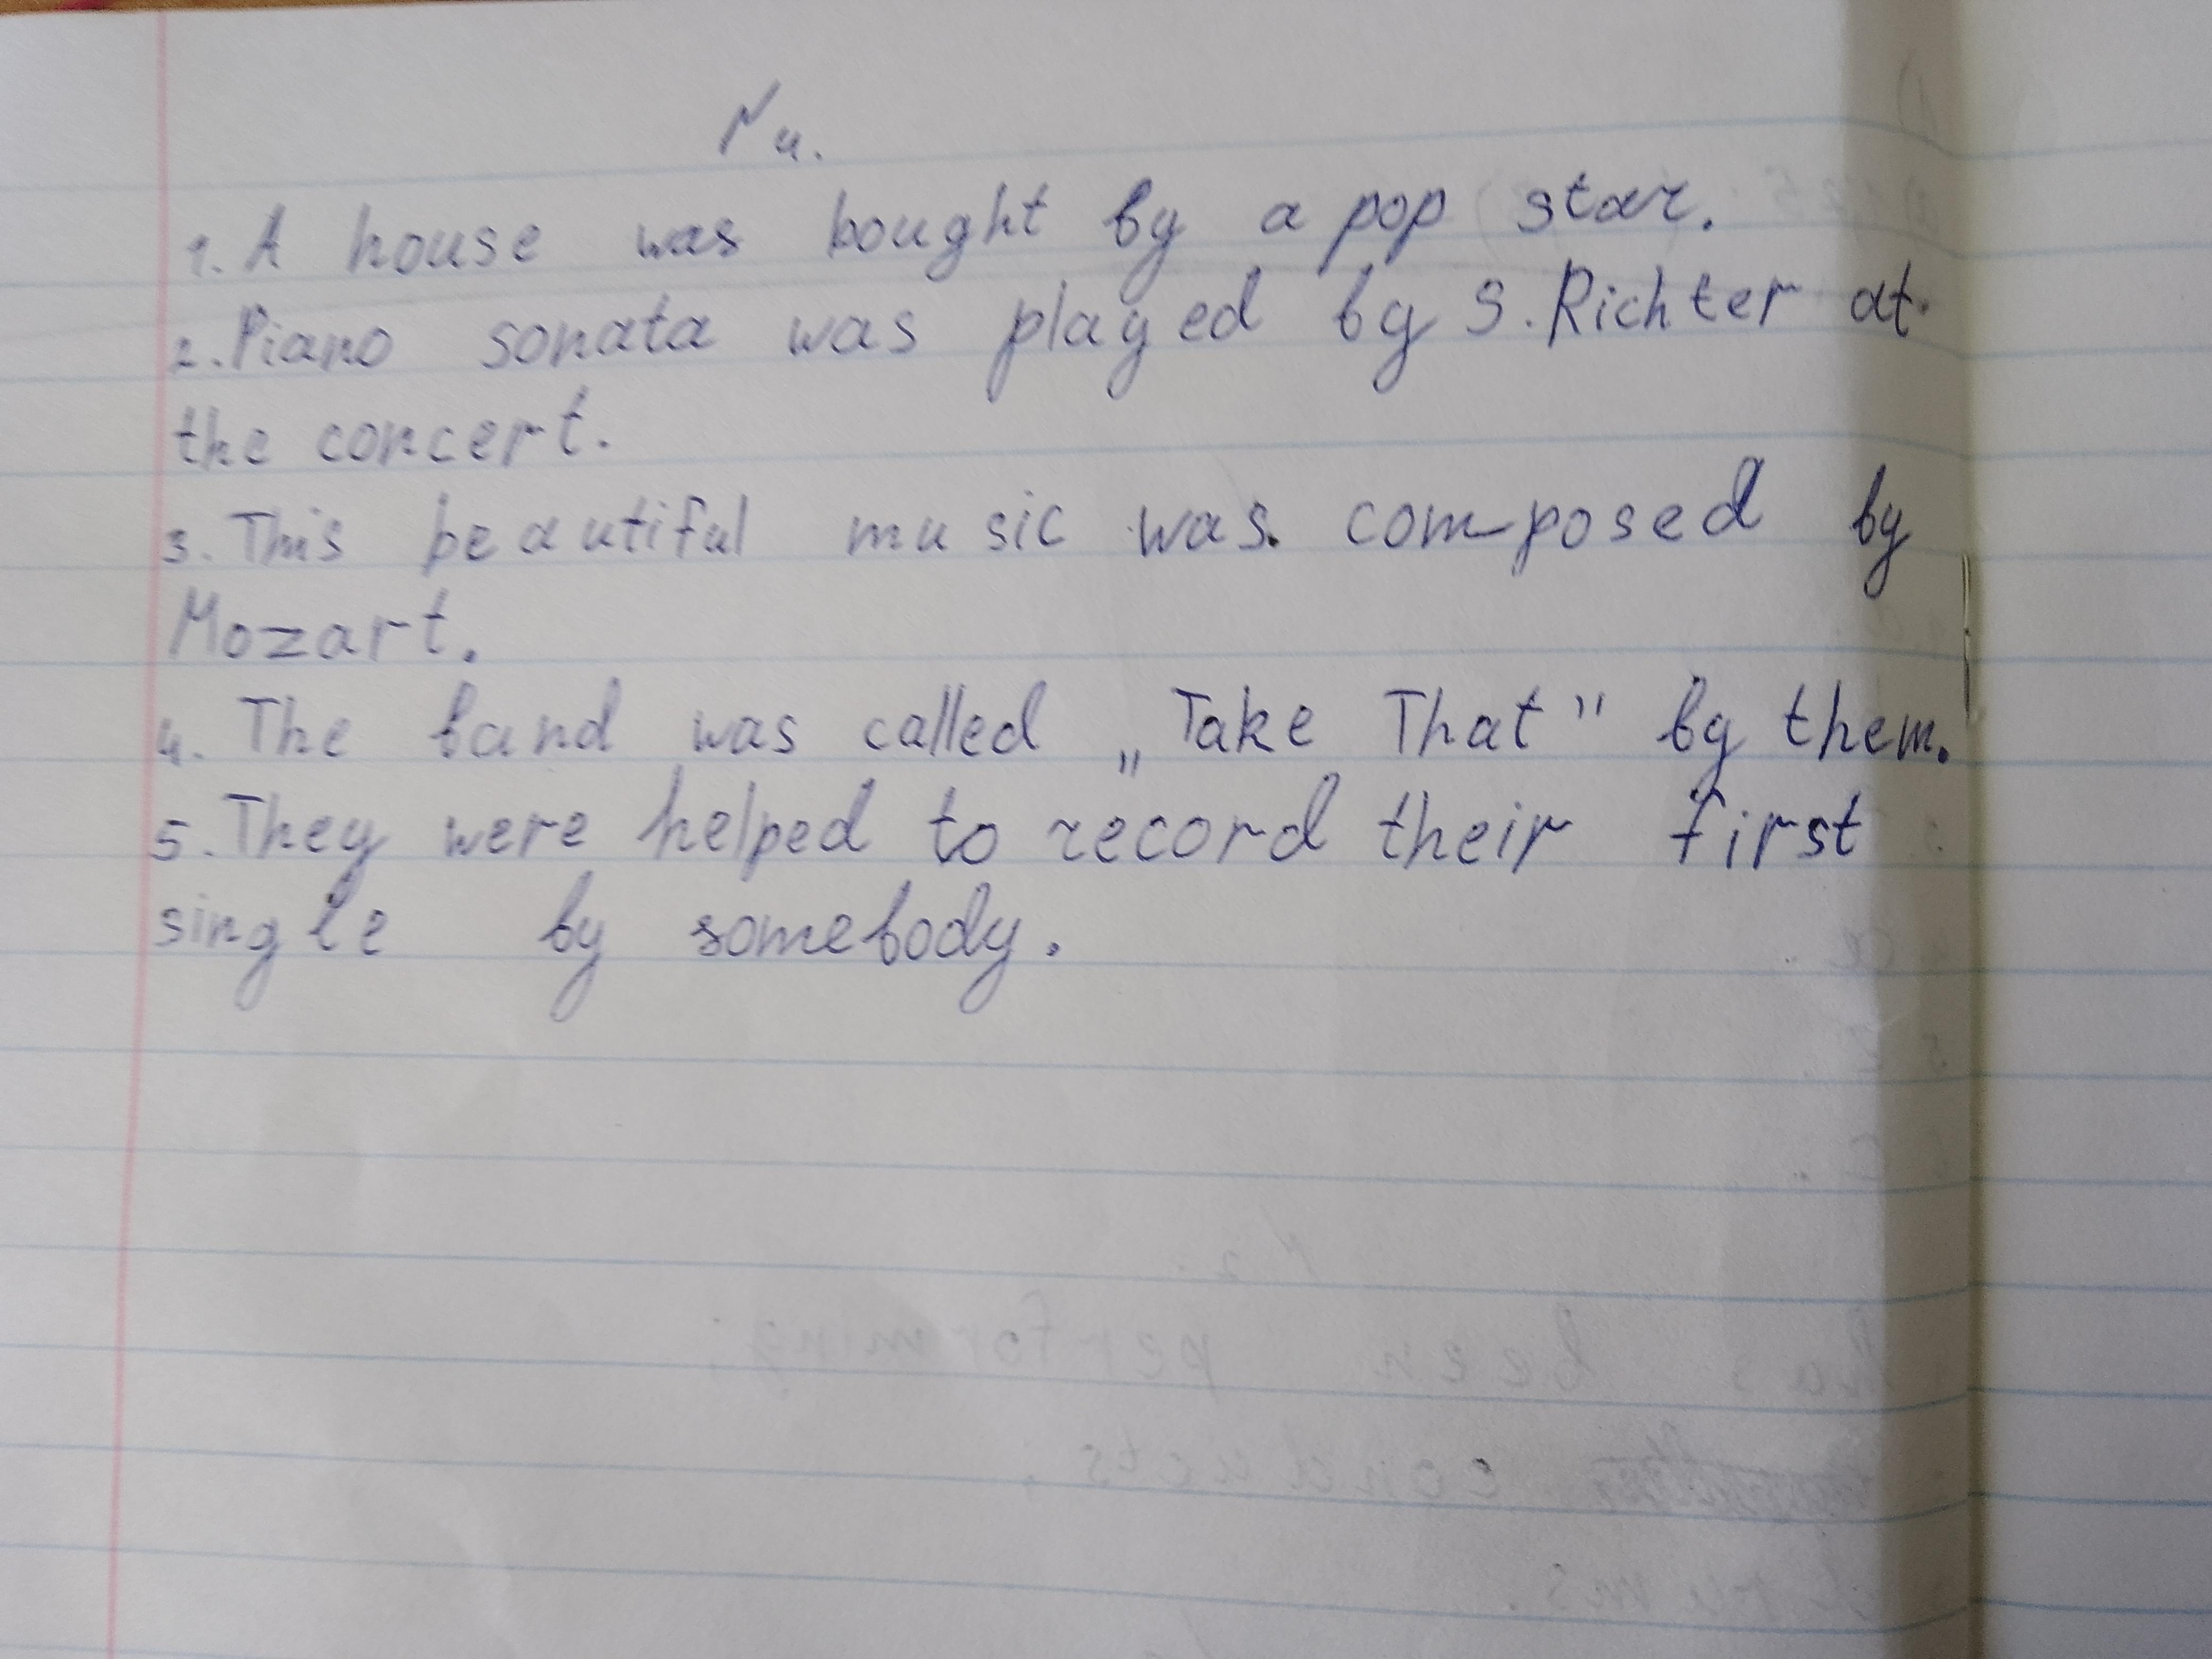 N 4.
1. A house was bought by a pop star.
2. Piano sonata was played by S. Richter at
the concert.
3. This beautiful music was composed by
Mozart.
4. The band was called „Take That" by them.
5. They were helped to record their first
single by somebody.